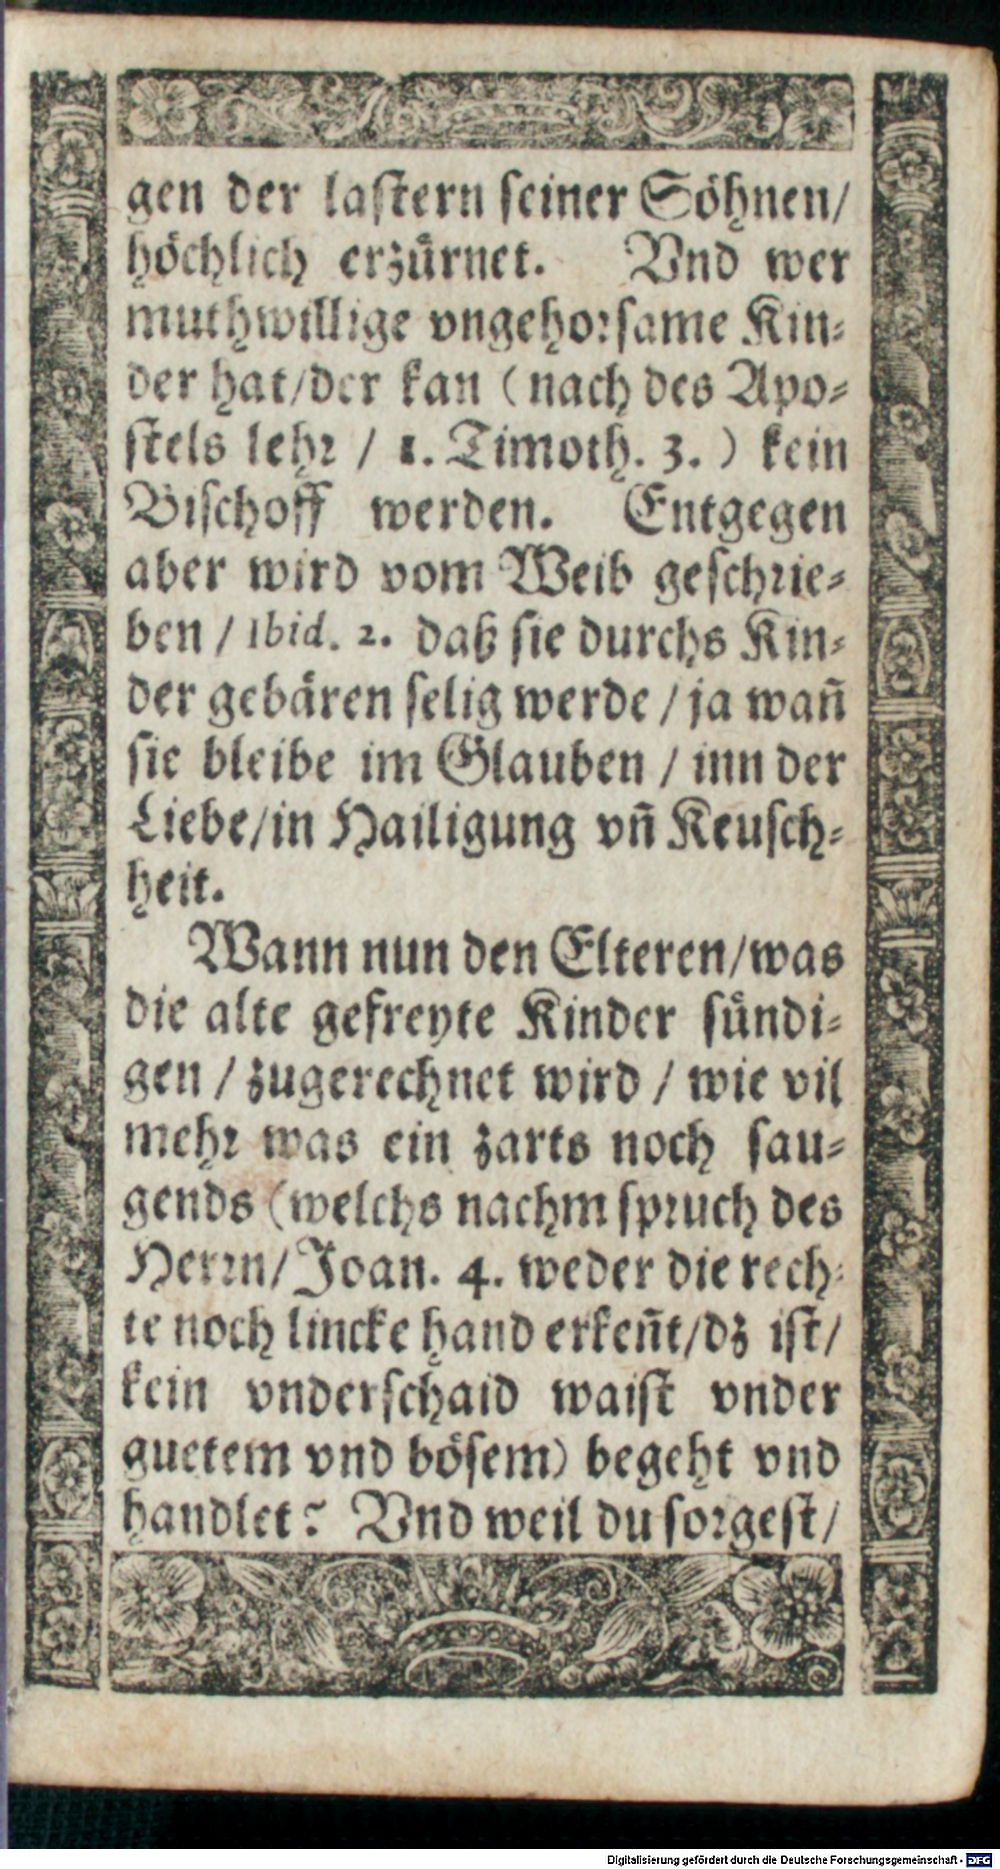 gen der lastern seiner Söhnen/
höchlich erzürnet. Vnd wer
muthwillige vngehorsame Kin-
der hat/der kan (nach des Apo-
stels lehr / 1. Timoth. 3.) kein
Bischoff werden. Entgegen
aber wird vom Weib geschrie-
ben / Ibid. 2. daß sie durchs Kin-
der gebären selig werde / ja wañ
sie bleibe im Glauben / inn der
Liebe/in Hailigung vñ Keusch-
heit.
Wann nun den Elteren/was
die alte gefreyte Kinder sündi-
gen / zugerechnet wird / wie vil
mehr was ein zarts noch sau-
gends (welchs nachm spruch des
Herrn/Joan. 4. weder die rech-
te noch lincke hand erkeñt/dz ist/
kein vnderschaid waist vnder
guetem vnd bösem) begeht vnd
handlet? Vnd weil du sorgest/
Digitalisierung gefördert durch die Deutsche Forschungsgemeinschaft - DFG